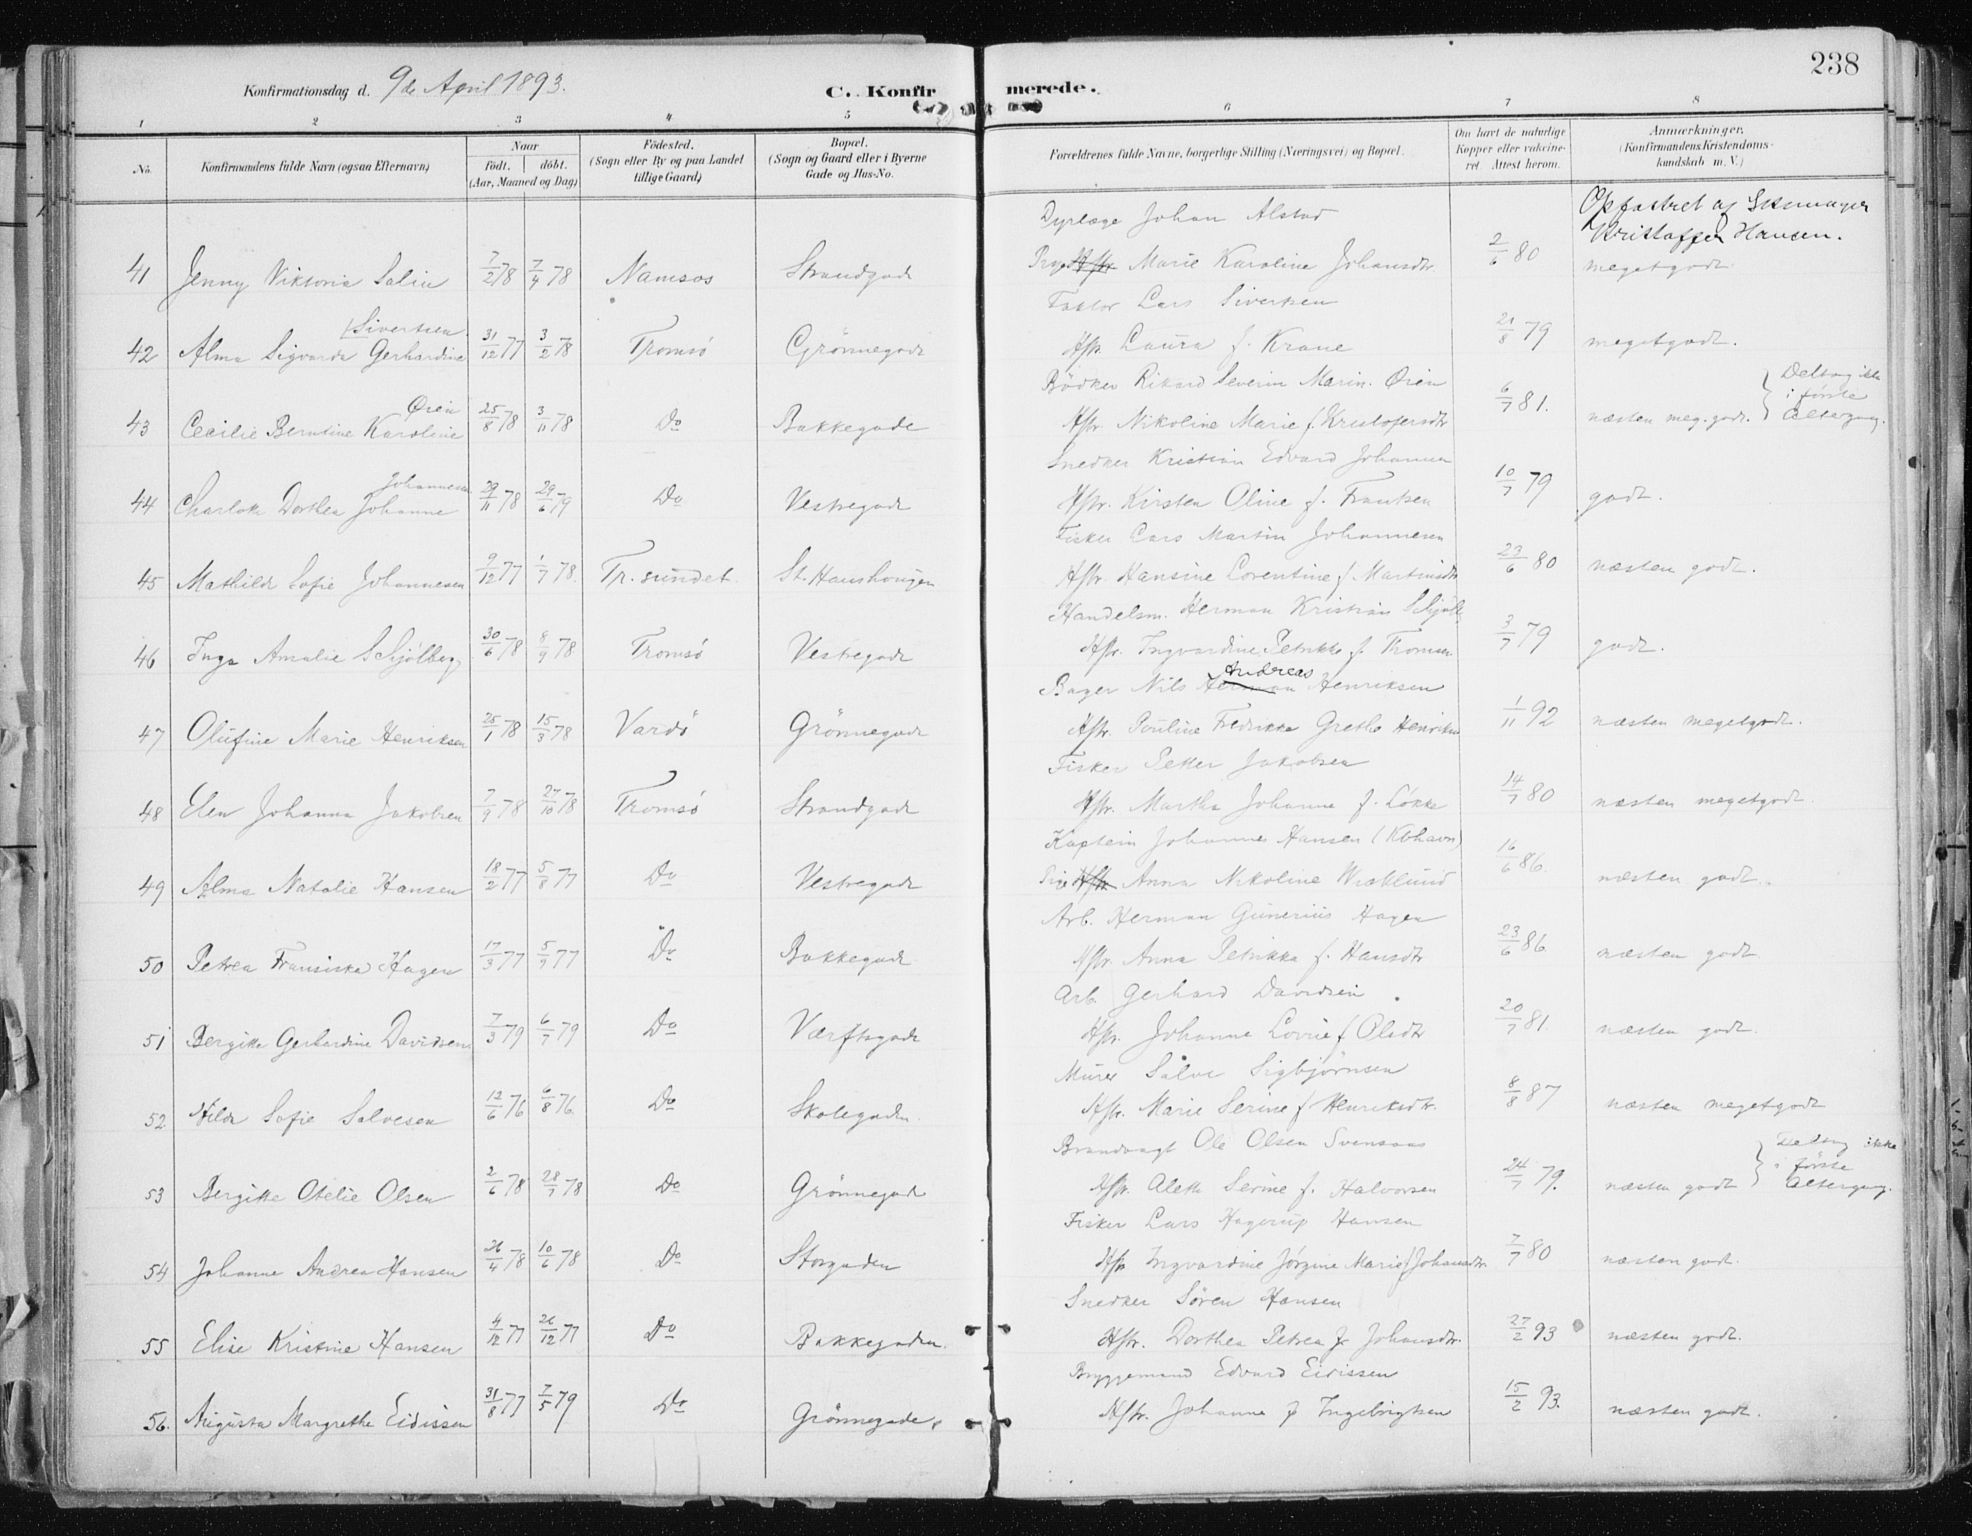 238
Konfirmationsdag d. 9de April 1893.
C. Konfir merede.
1 2 3 4 5 6 7 8
No. Konfirmandens fulde Navn (ogsaa Efternavn) Naar Født. døbt. (Aar, Maaned og Dag)
Fødested. (Sogn eller By og paa Landet tillige Gaard)
Bopæl. (Sogn og Gaard eller i Byerne Gade og Hus-No.
Forældrenes fulde Navne, borgerlige Stilling (Næringsvei) og Bopæl.
Om havt de naturlige Kopper eller vakcineret. Attest herom.
Anmærkninger. (Konfirmandens Kristendomskundskab m. V.)
Dyrlæge Johan Alstad
Opfostret af
Kristoffer Hansen.
41 Jenny Viktoria Salin 7/2 78 7/4 78 Namsos Strandgade Pige Hstr. Marie Karoline Johansdtr 2/6 80 megetgodt.
Faktor Lars Sivertsen
Sivertsen
42 Alma Sigvarda Gerhardine 31/12 77 3/2 78 Tromsö Grönnegade Hstr. Laura f. Krane 21/8 79 megetgodt.
Bödker Rikard Severin Marin. Øien
Øien
43 Cecilie Berntine Karoline 25/8 78 3/11 78 Do Bakkegade Hstr. Nikoline Marie f. Kristofersdtr 6/7 81. næsten meg. godt. Deltog ikke i første Altergang.
Snedker Kristian Edvard Johannesen
Johannesen
44 Charlotte Dorthea Johanne 29/11 78 29/6 79 Do Vestregade Hstr. Kirsten Oline f. Frantsen 10/7 79 godt.
Fisker Lars Martin Johannesen
45 Mathilde Sofie Johannesen 9/12 77 1/7 78. Tr. sundet St. Hanshougen Hstr. Hansine Lorentine f. Martinsdtr 23/6 80 næsten godt.
Handelsm. Herman Kristian
46 Inga Amalie Schjölberg 30/6 78 8/9 78 Tromsö Vestregade Hstr. Ingvardine Petrikke f. 3/7 79 godt.
Andreas
Bager Nils Herman Henriksen
47 Olufine Marie Henriksen 25/1 78 15/3 78 Vardö Grönnegade Hstr. Pouline Fredrikke Grethe Henriksen 1/11 92 næsten megetgodt.
Fisker Petter Jakobsen
48 Elen Johanna Jakobsen 7/9 78 27/10 78 Tromsö Strandgade Hstr. Martha Johanne f. Lökke 14/7 80 næsten megetgodt.
Kaptein Johannes Hansen (Kbhavn)
49 Alma Natalie Hansen 18/2 77 5/8 77 Do Vestregade Pige Hstr. Anna Nikoline 16/6 86. næsten godt.
Arb. Herman Gunerius Hagen
50 Petrea Fransiska Hagen 17/3 77 5/9 77 Do Bakkegade Hstr. Anna Petrikka f. Hansdtr 23/6 86 næsten godt
Arb. Gerhard Davidsen
51 Bergitte Gerhardine Davidsen 7/3 79 6/7 79 Do Værftsgade Hstr. Johanne Lovise f Olsdtr 20/7 81 næsten godt.
Murer Salve Sigbjørnsen
52 Hilda Sofie Salvesen 12/6 76 6/8 76 Do Skolegaden Hstr. Marie Serine f Henriksdtr. 8/8 87 næsten megetgodt
Brandvagt Ole Olsen Svensaas
53 Bergitte Otelie Olsen 2/6 78 28/7 78 Do Grönnegade Hstr. Aleth Serine f. Halvorsen 24/7 79. næsten godt Deltog ikke i første Altergang.
Fisker Lars Hagerup Hansen
54 Johanne Andrea Hansen 26/4 78 10/6 78 Do Storgaden Hstr Ingvardine Jörgine Marie f Johansdtr 7/7 80 næsten godt.
Snedker Sören Hansen
55 Elise Kristine Hansen 4/12 77 26/12 77 Do Bakkegaden. Hstr. Dorthea Petrea f. Johansdtr. 27/2 93 næsten godt.
Bryggemand Edvard Eidissen
56. Augusta Margrethe Eidissen 31/8 77 7/5 79 Do Grönnegade. Hstr. Johanne f Ingebrigtsen 15/2 93. næsten godt.